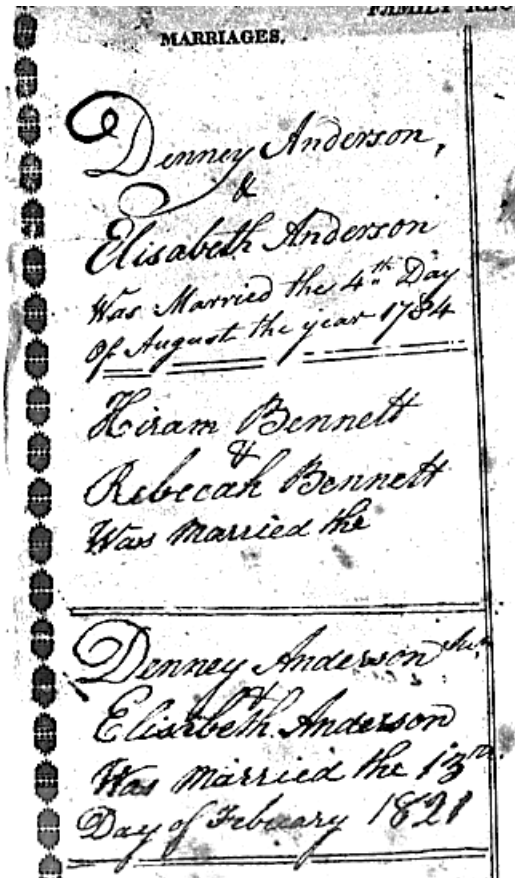 FAMILY REC
MARRIAGES.
Denney Anderson,
&
Elisabeth Anderson
Was Married the 4th Day
Of August the year 1784
Hiram Bennett
&
Rebecah Bennett
Was Married the
Denney Anderson Jun.
&
Elisabeth Anderson
Was Married the 13th
Day of Febuary 1821